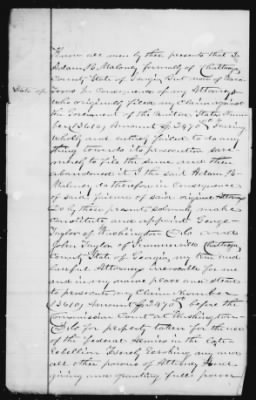 Know all men by these presents that I
Adam B. Maloney formally of Chattooga
County State of Georgia but now of
State of
Texas In Consequence of my Attorneys
who originally filed my Claim against
the Government of the United States Num-
ber (3610) Amount $3975 having
wholly and entirely failed to do any
thing towards its prosecution
merely to file the same and then
abandoned it I the said Adam B.
Maloney do therefore in Consequence
of said failure of said
Do by these presents, make
Constitute and appoint George
Taylor of Washington City and
John Taylor of Summerville Chattooga
County State of Georgia, my true and
lawful Attorneys irrevocable for me
and in my name place and Stead
to prosecute my Claim Number
(3610) Amount $3975 before the
Commissioner Court at Washington
City for property taken for the use
of the Federal Armies in the late
rebellion Hereby revoking any and
all other powers of Attorney
giving and granting full power